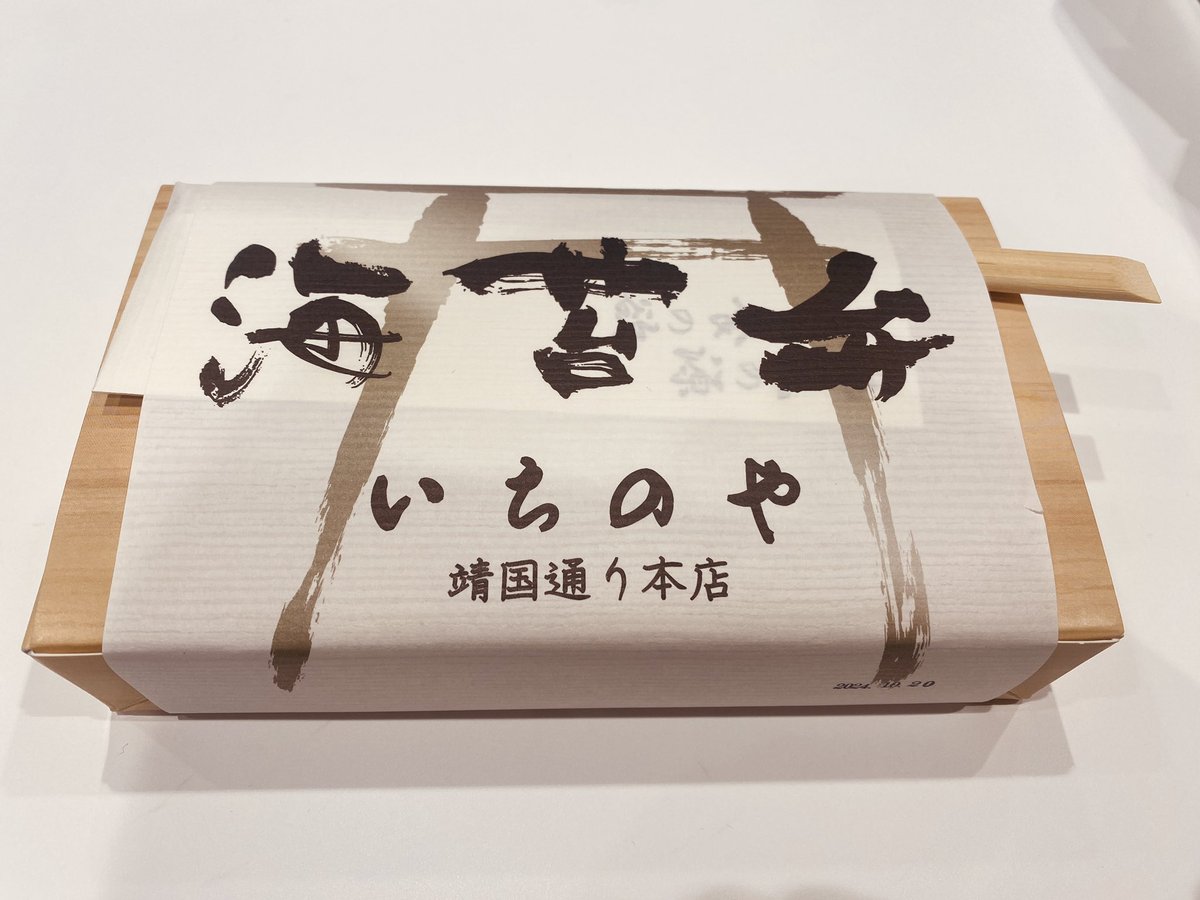 海苔弁
いちのや
靖国通り本店
2024.10.20